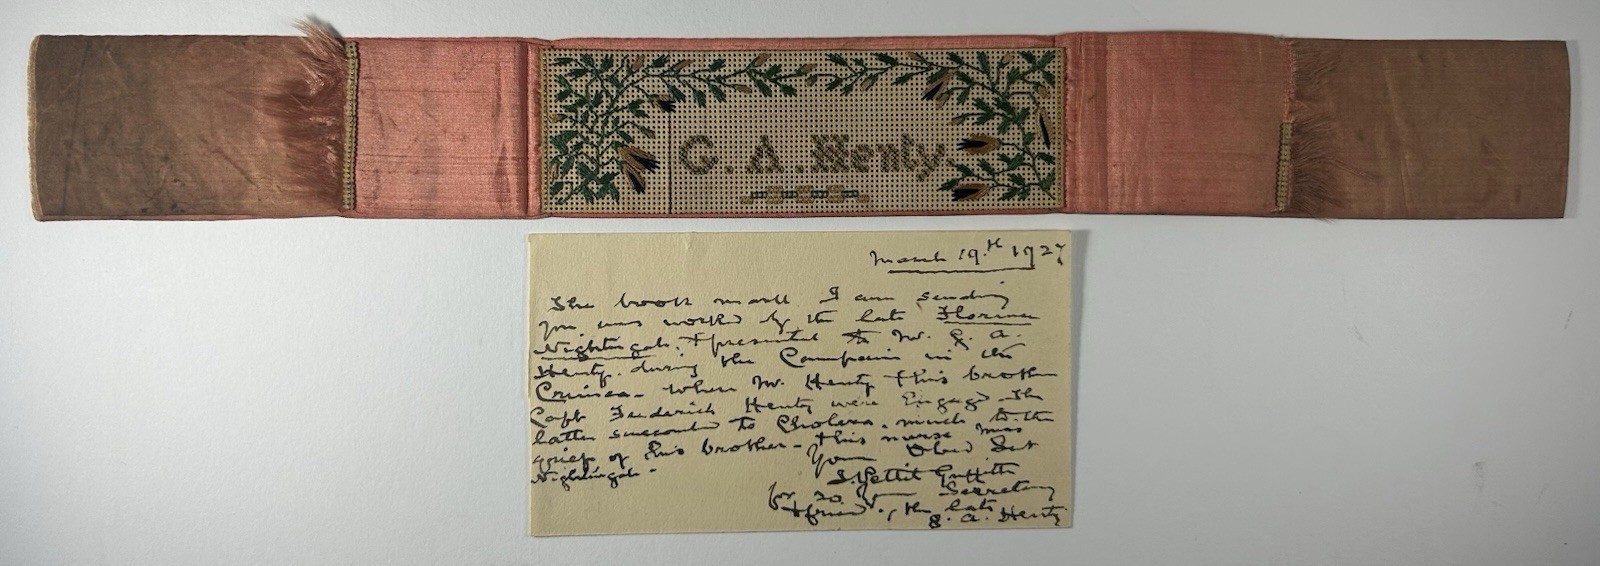 G. A. Henty.
March 19th 1927
The book mark I am sending
you was worked by the late Florence
Nightingale. & presented to Mr. G. A.
Henty. during the Campaign in the
Crimea - when Mr. Henty & his brother
Capt Frederick Henty were Engaged. The
latter succumbed to Cholera, much to the
grief of his brother - & his nurse Miss
Nightingale -
Your Obed Set
J. Pettit Griffith
for 20 years Secretary
& friend of the late
G. A. Henty